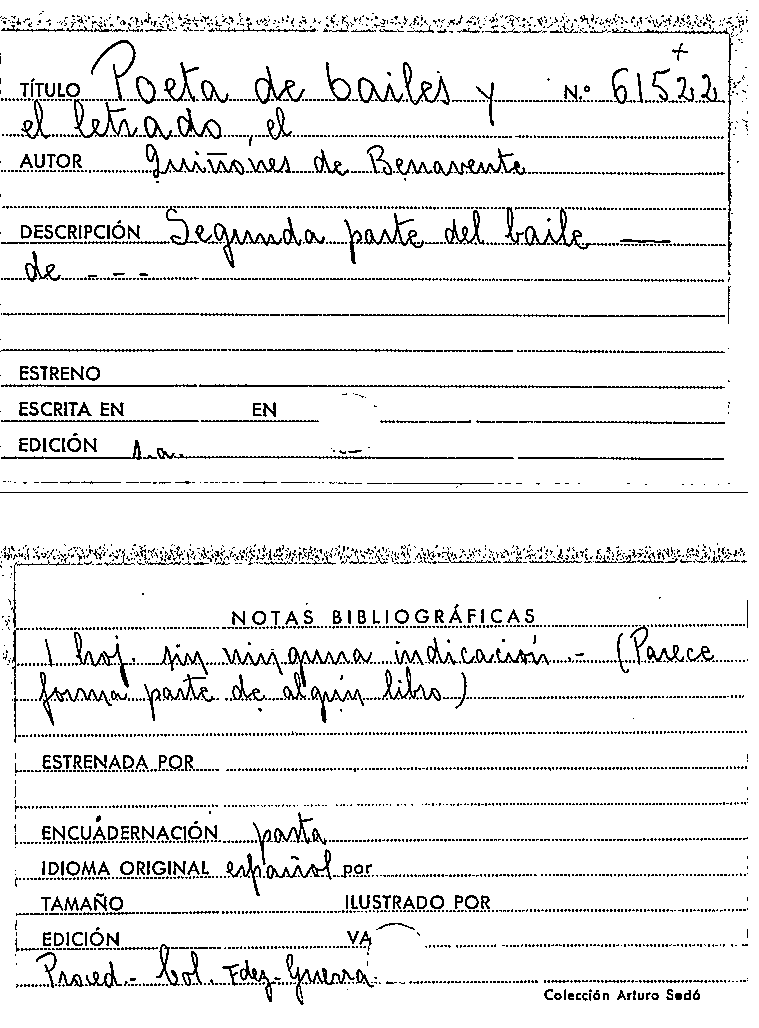 +
TÍTULO Poeta de bailes y N.º 61522
el letrado, el
AUTOR Quiñones de Benavente
DESCRIPCIÓN Segunda parte del baile —
de - - -
ESTRENO
ESCRITA EN EN
EDICIÓN s.a.
NOTAS BIBLIOGRÁFICAS
1 hoj. sin ninguna indicación.- (Parece
forma parte de algún libro)
ESTRENADA POR
ENCUADERNACIÓN pasta
IDIOMA ORIGINAL español por
TAMAÑO ILUSTRADO POR
EDICIÓN VA
Proced.- Col. Fdez-Guerra.
Colección Arturo Sedó